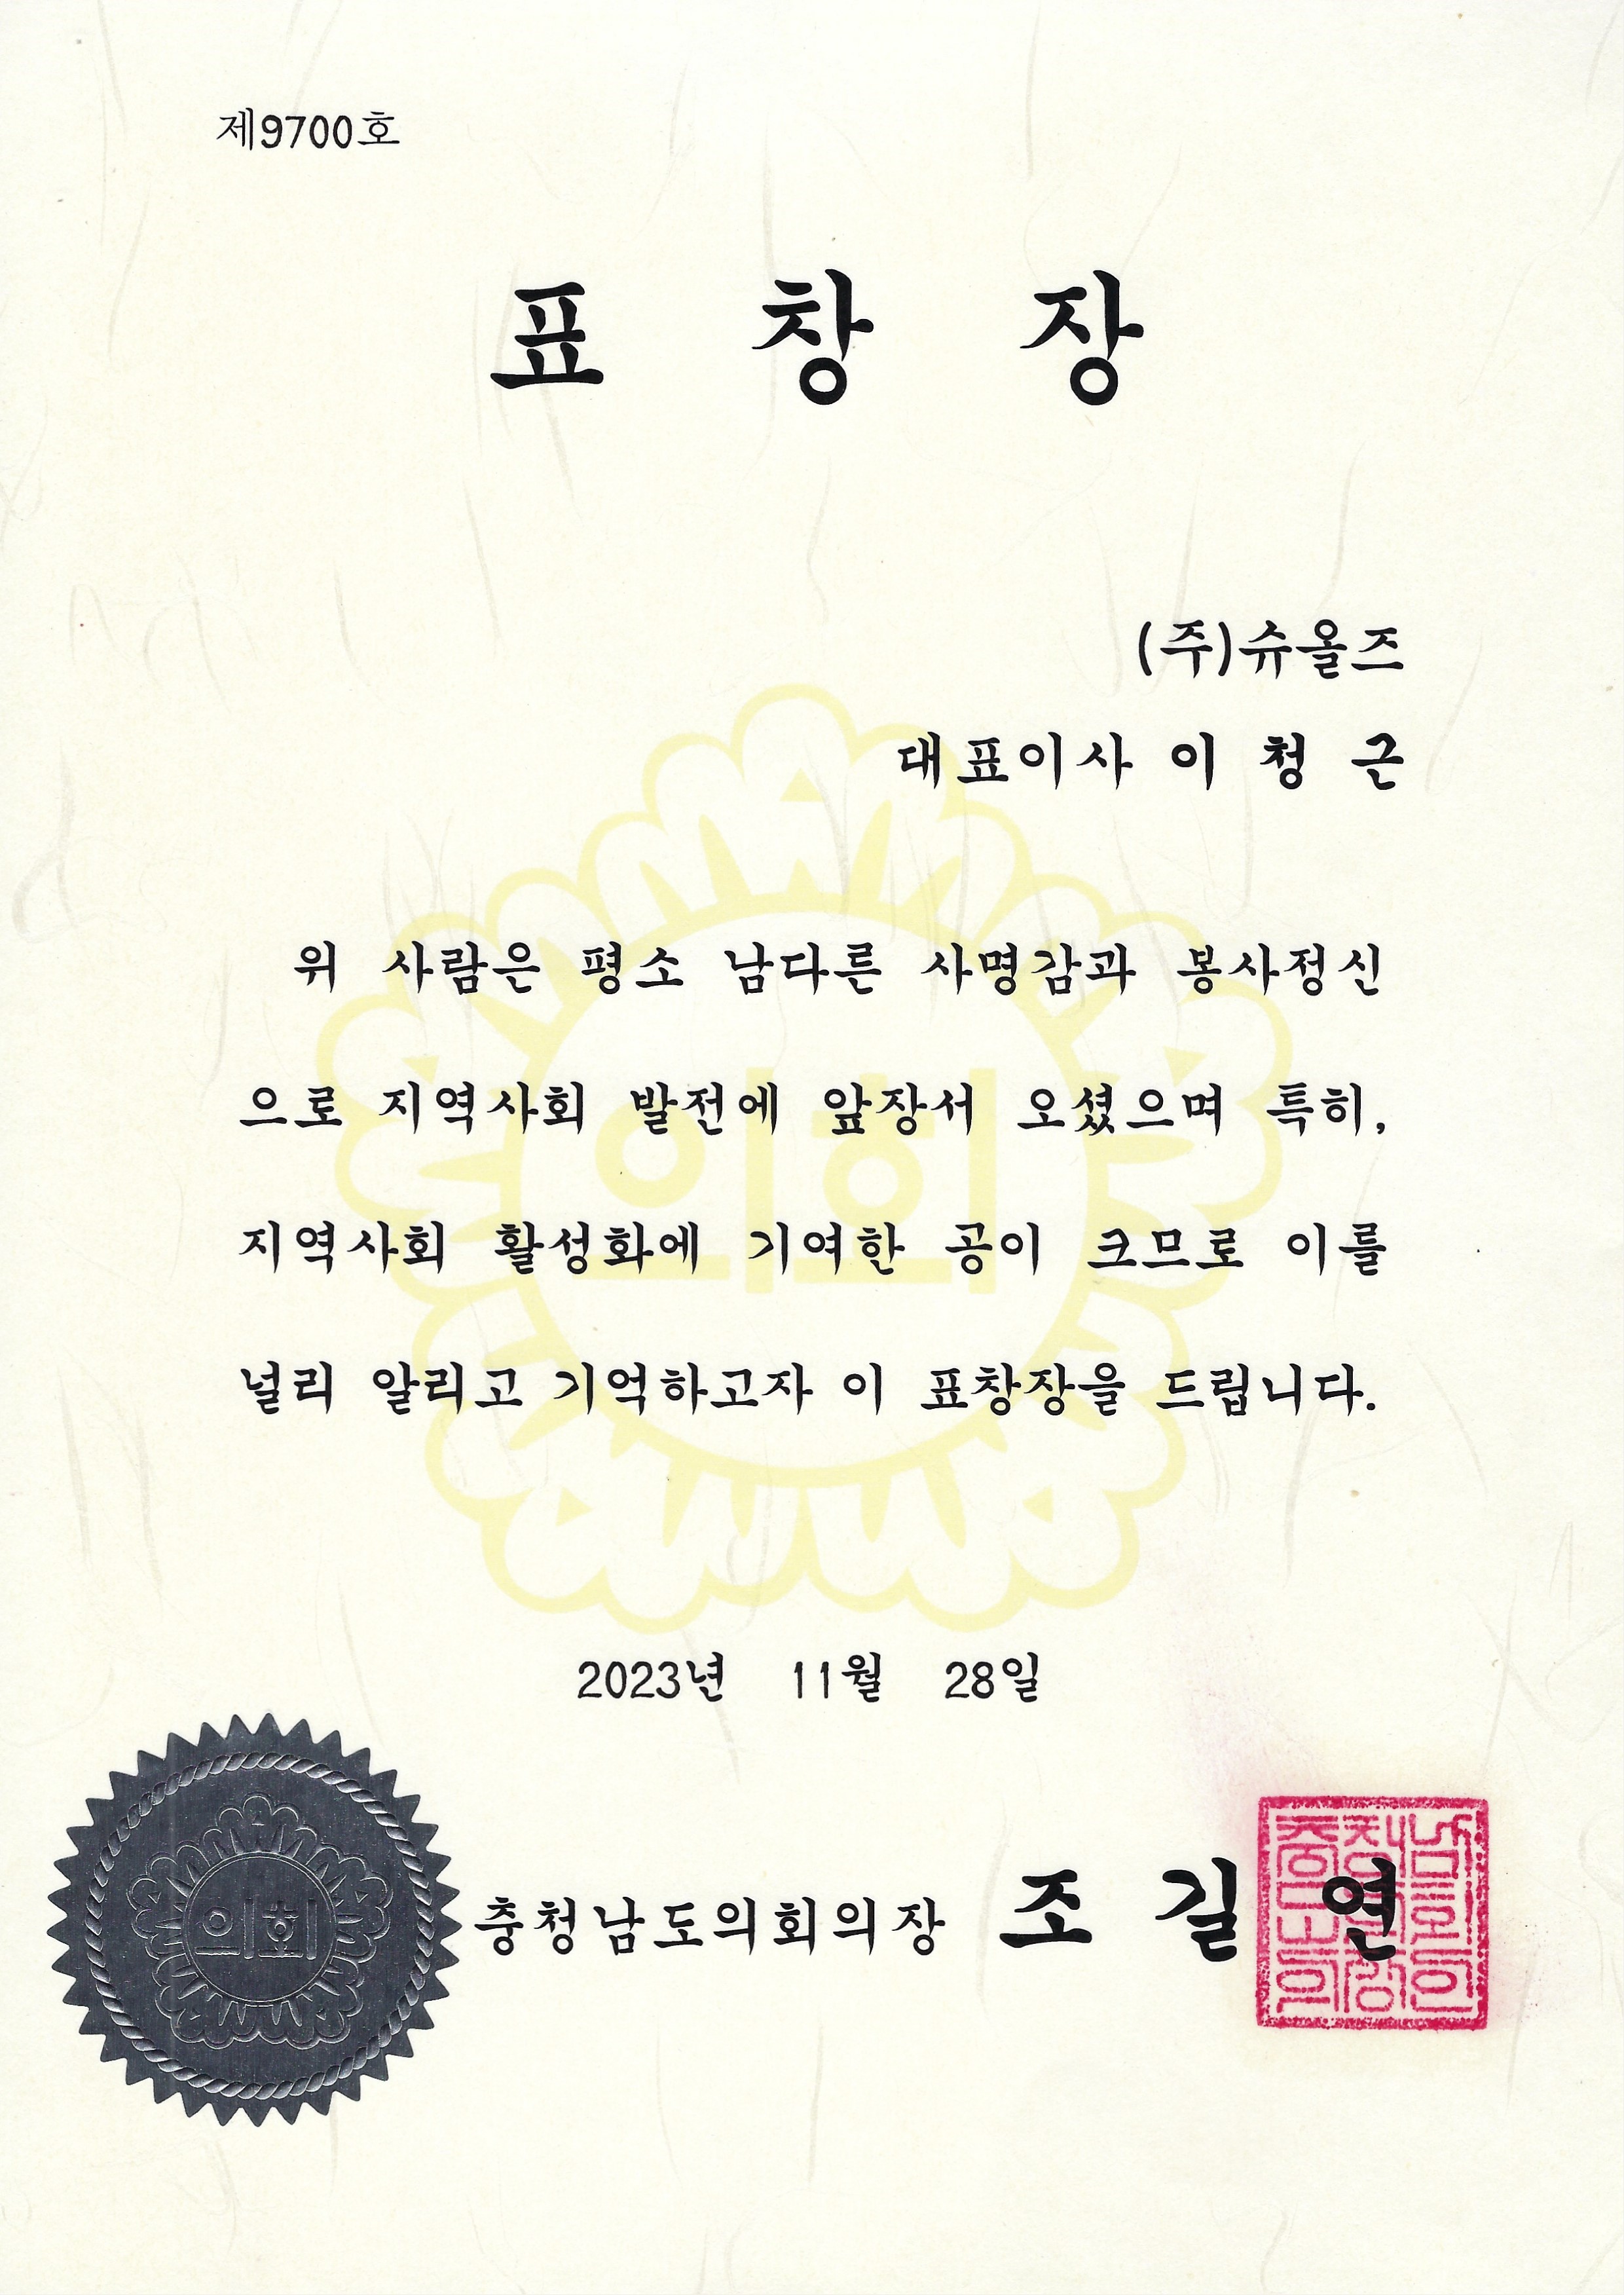 제9700호
표 창 장
(주)슈올즈
대표이사 이 청 근
위 사람은 평소 남다른 사명감과 봉사정신
으로 지역사회 발전에 앞장서 오셨으며 특히,
지역사회 활성화에 기여한 공이 크므로 이를
널리 알리고 기억하고자 이 표창장을 드립니다.
2023년 11월 28일
충청남도의회의장 조 길 연
의회
의회